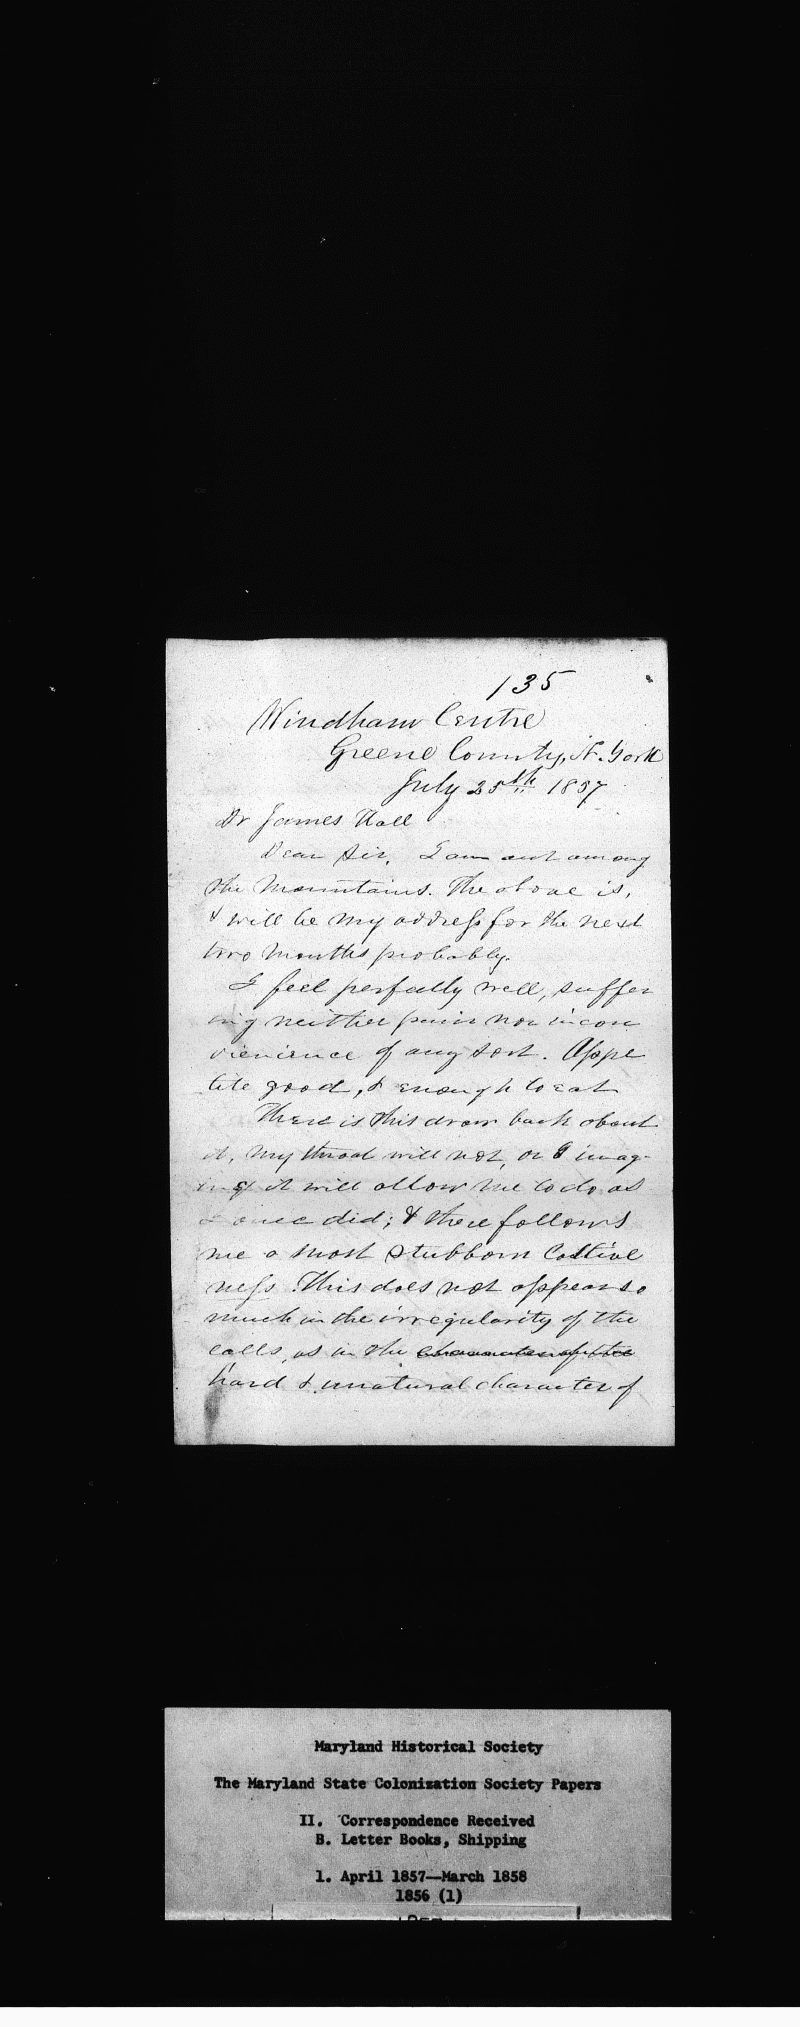 135
Windham Centre
Greene County, N. York
July 25th 1857
Dr James Hall
Dear Sir, I am out among
the Mountains. The above is,
& will be my address for the next
two months probably.
I feel perfectly well, suffer
ing neither pain nor incon
vienience of any sort. Appe
tite good, & enough to eat
There is this draw back about
it, my throat will not, or I imag-
ine it will allow me to do as
I once did; & there follows
me a most stubborn Costive
ness. This does not appear so
much in the irregularity of the
calls, as in the character of the
hard & unatural character of
Maryland Historical Society
The Maryland State Colonization Society Papers
II. Correspondence Received
B. Letter Books, Shipping
1. April 1857—March 1858
1856 (1)